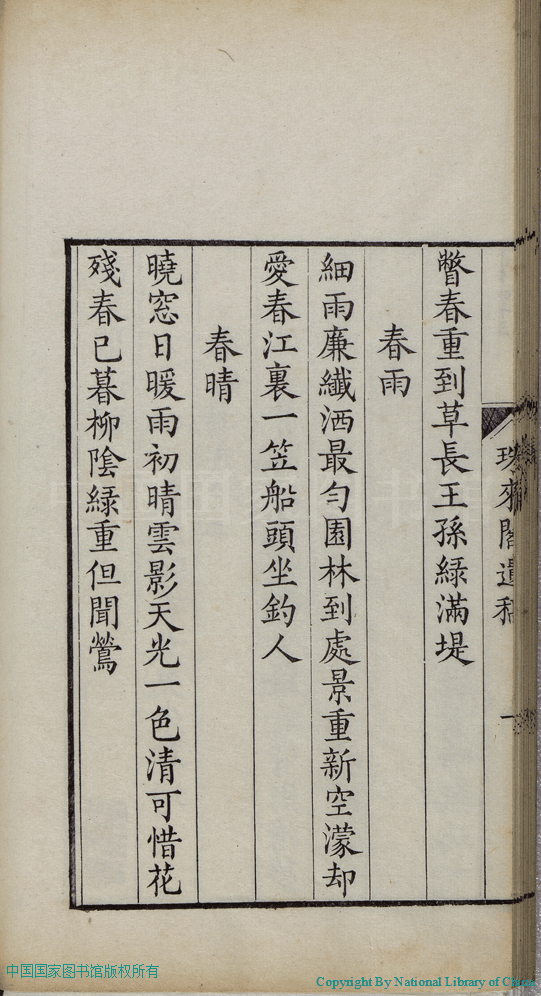 瞥春重到草長王孫綠滿堤
春雨
細雨廉纖洒最勻園林到處景重新空濛却
愛春江裏一笠船頭坐釣人
春晴
曉窓日暖雨初晴雲影天光一色清可惜花
殘春已暮柳陰綠重但聞鶯
來閣遺稿
一
中国国家图书馆版权所有
Copyright By National Library of China